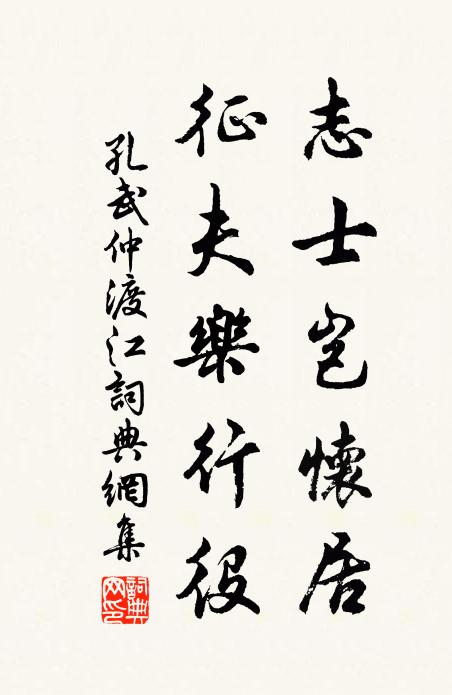 志士岂懷居
征夫樂行役
孔武仲渡江詞典網集
詞典网印